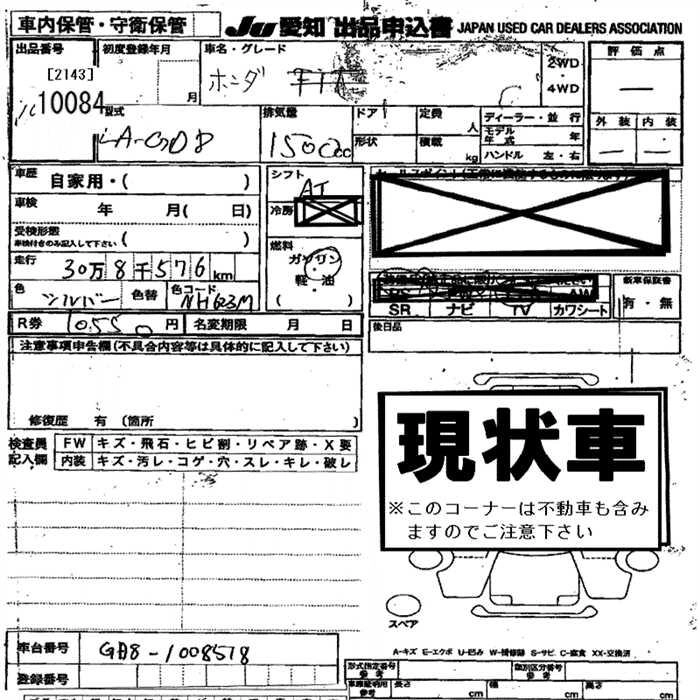 車内保管・守衛保管 JU 愛知 出品申込書 JAPAN USED CAR DEALERS ASSOCIATION
出品番号 初度登録年月 車名・グレード 評価点
[2143] ホンダ FIT 2WD
10084 月 ・4WD
型式 排気量 ドア 定員 ディーラー・並行 外装 内装
LA-GD8 1500cc 人 モデル年式 年
形状 積載 kg ハンドル 左・右
車歴 自家用・( ) シフト AT
車検 年 月( 日) 冷房
受検形態
車検付きのみ記入して下さい ( ) 燃料
走行 30万8千576km ガソリン
軽・油
色 シルバー 色替 色コード NH623M ( )
SR ナビ TV カワシート
新車保証書
有・無
R券 10,550円 名変期限 月 日 後日品
注意事項申告欄(不具合内容等は具体的に記入して下さい)
修復歴 有 (箇所 )
検査員記入欄 FW キズ・飛石・ヒビ割・リペア跡・X要
内装 キズ・汚レ・コゲ・穴・スレ・キレ・破レ
現状車
※このコーナーは不動車も含み
ますのでご注意下さい
スペア
A-キズ E-エクボ U-凹み W-補修跡 S-サビ C-腐食 XX-交換済
車台番号 GD8-1008518
登録番号
形式指定番号 参考 類別区分番号 参考
参考 長さ cm 幅 cm 高さ cm